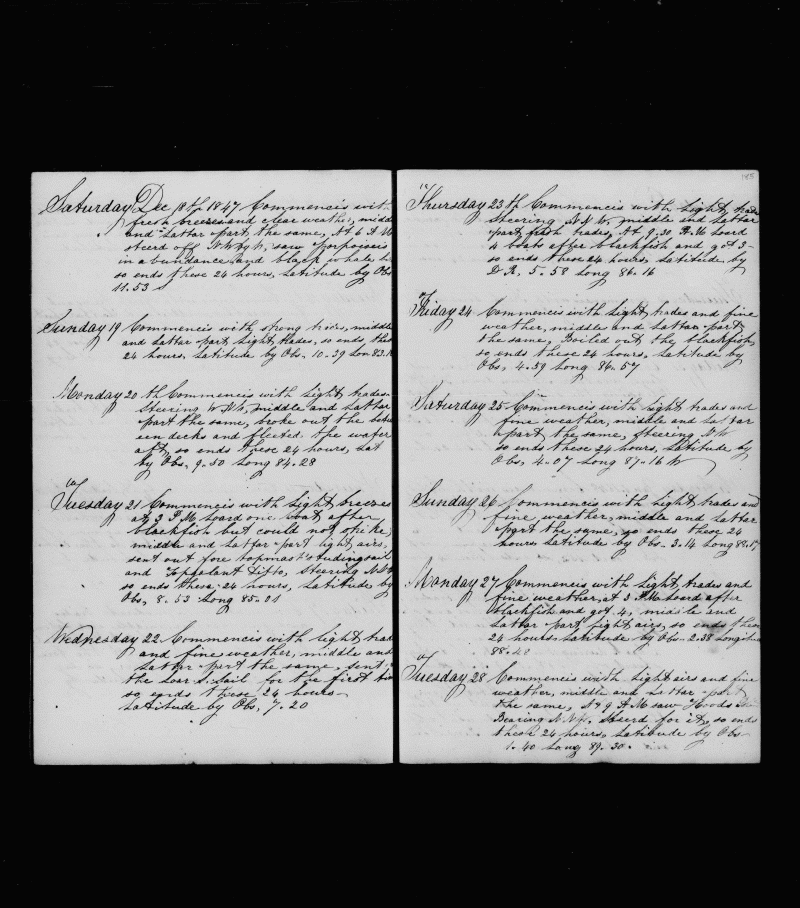 Saturday Dec 18th 1847 Commencis with
fresh breezes and clear weather, middle
and Lattar part the same, At 6 A M
steerd off N W by W, saw Porpoisis
in abundance and black whale,
so ends these 24 hours, Latitude by Obs
11.53 s
Sunday 19 Commencis with strong trades, middle
and Lattar part Light trades, so ends these
24 hours, Latitude by Obs. 10-39 Lon 83.1
Monday 20th Commencis with Light trades
Steering W N W, middle and Lattar
part the same, broke out the betw
een decks and fleeted the water
aft, so ends these 24 hours, Lat
by Obs, 9-50 Long 84-28
Tuesday 21 Commencis with Light breezes
at 3 P M Loard one boat after
blackfish but could not strike,
middle and Lattar part light airs,
sent out fore topmast studingsail
and Topgalant Ditto, Steering N W
so ends these 24 hours, Latitude by
Obs, 8-53 Long 85-01
Wednesday 22 Commencis with light trad
and fine weather, middle and
Lattar part the same, sent
the Loard sail for the first time
so ends these 24 hours
Latitude by Obs, 7-20
185
Thursday 23th Commencis with Light trades
steering N N W, middle and Lattar
part fresh trades, At 9-30 A M Loard
4 boats after blackfish and got 3-
so ends these 24 hours, Latitude by
D R, 5-58 Long 86-16
Friday 24 Commencis with Light trades and fine
weather, middle and Lattar part
the same, Boiled out the blackfish,
so ends these 24 hours, Latitude by
Obs, 4-59 Long 86-57
Saturday 25 Commencis with Light trades and
fine weather, middle and Lattar
part the same, steering N W
so ends these 24 hours, Latitude by
Obs, 4-07 Long 87-16 W
Sunday 26 Commencis with Light trades and
fine weather, middle and Lattar
part the same, so ends these 24
hours Latitude by Obs- 3-14 Long 88-17
Monday 27 Commencis with Light trades and
fine weather, at 3 P M Loard after
blackfish and got 4, middle and
Lattar part Light airs, so ends these
24 hours Latitude by Obs- 2-38 Longitude
88-48
Tuesday 28 Commencis with Light airs and fine
weather, middle and Lattar part
the same, At 9 A M saw Hoods
Bearing N N W. steerd for it, so ends
these 24 hours, Latitude by Obs
1-40 Long 89-30-